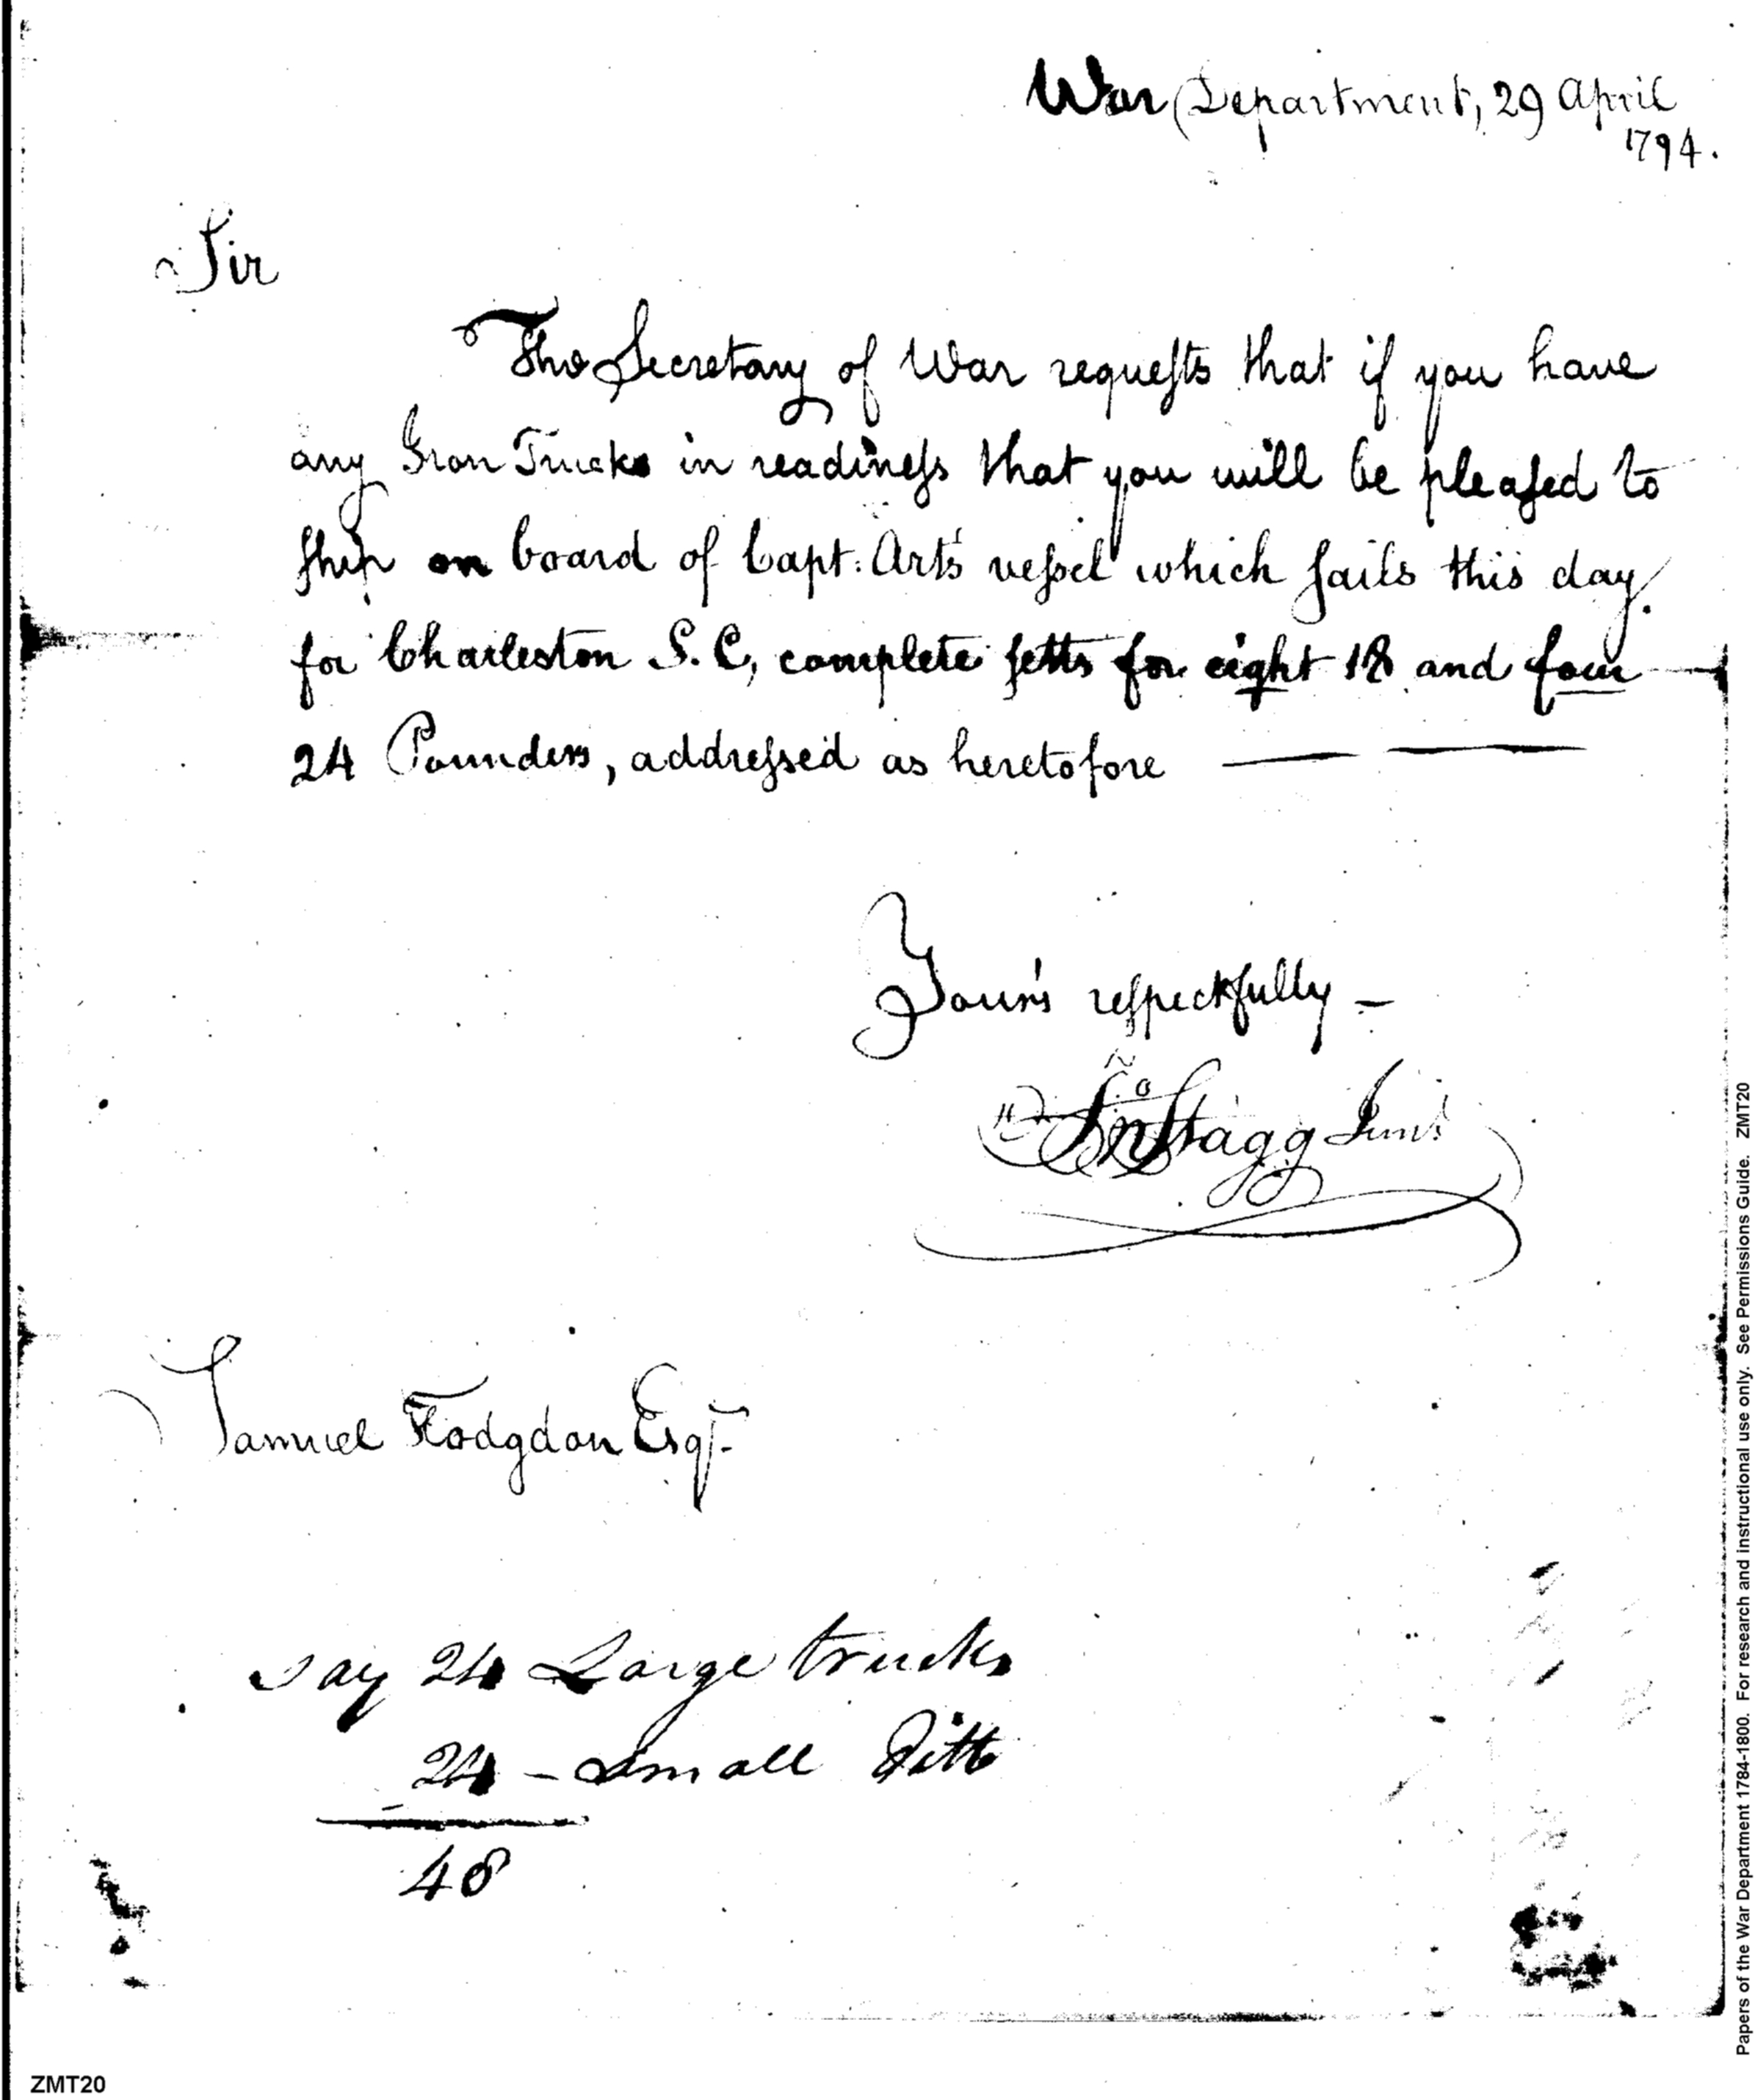 War Department, 29 April
1794.
Sir
The Secretary of War requests that if you have
any Iron Trucks in readiness that you will be pleased to
ship on board of Capt. Art's vessel which sails this day
for Charleston S.C, complete setts for eight 18 and four
24 Pounders, addressed as heretofore
Your's respectfully
Jno Stagg Junr
Samuel Hodgdon Esqr.
say 24 Large trucks
24 - Small Ditto
48
ZMT20
Papers of the War Department 1784-1800. For research and instructional use only. See Permissions Guide. ZMT20